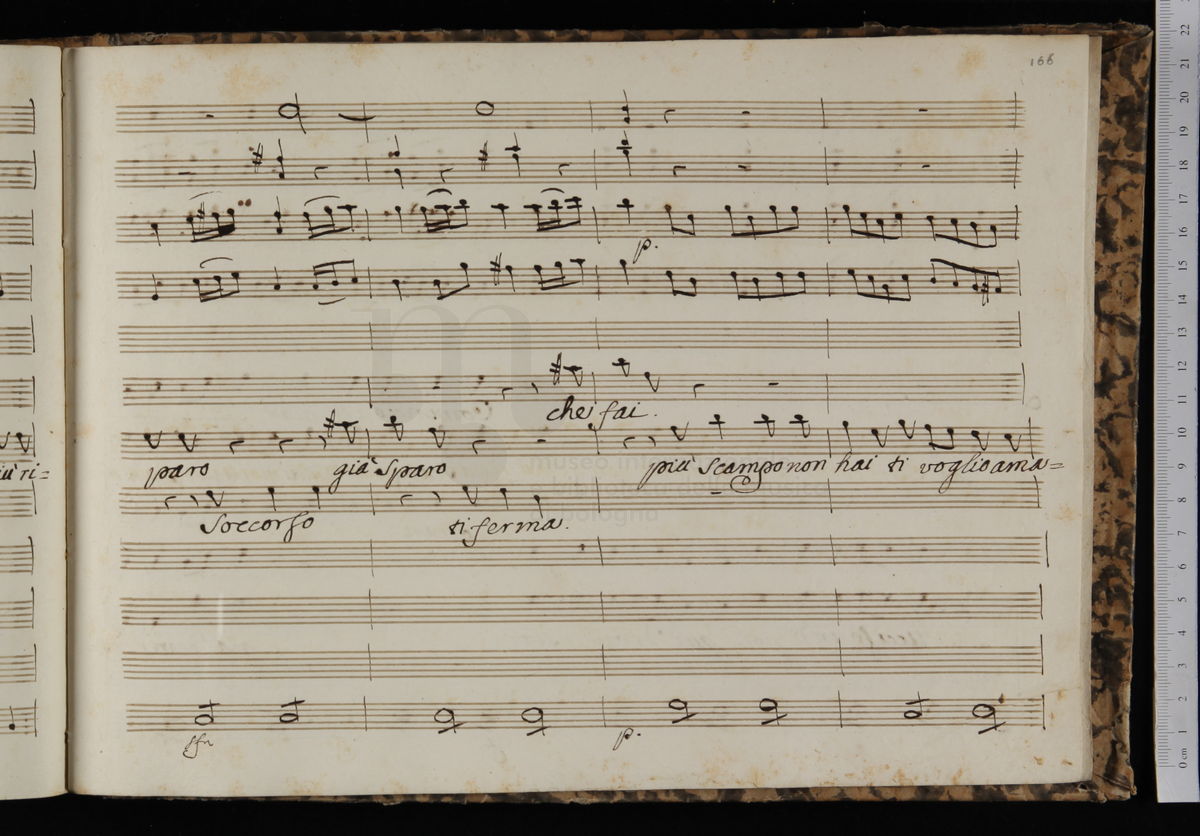 166
p.
che fai.
iù ri=
paro già Sparo più scampo non hai ti voglio ama=
Soccorso ti ferma.
p.
museo inte
bologna
0 cm 1 2 3 4 5 6 7 8 9 10 11 12 13 14 15 16 17 18 19 20 21 22